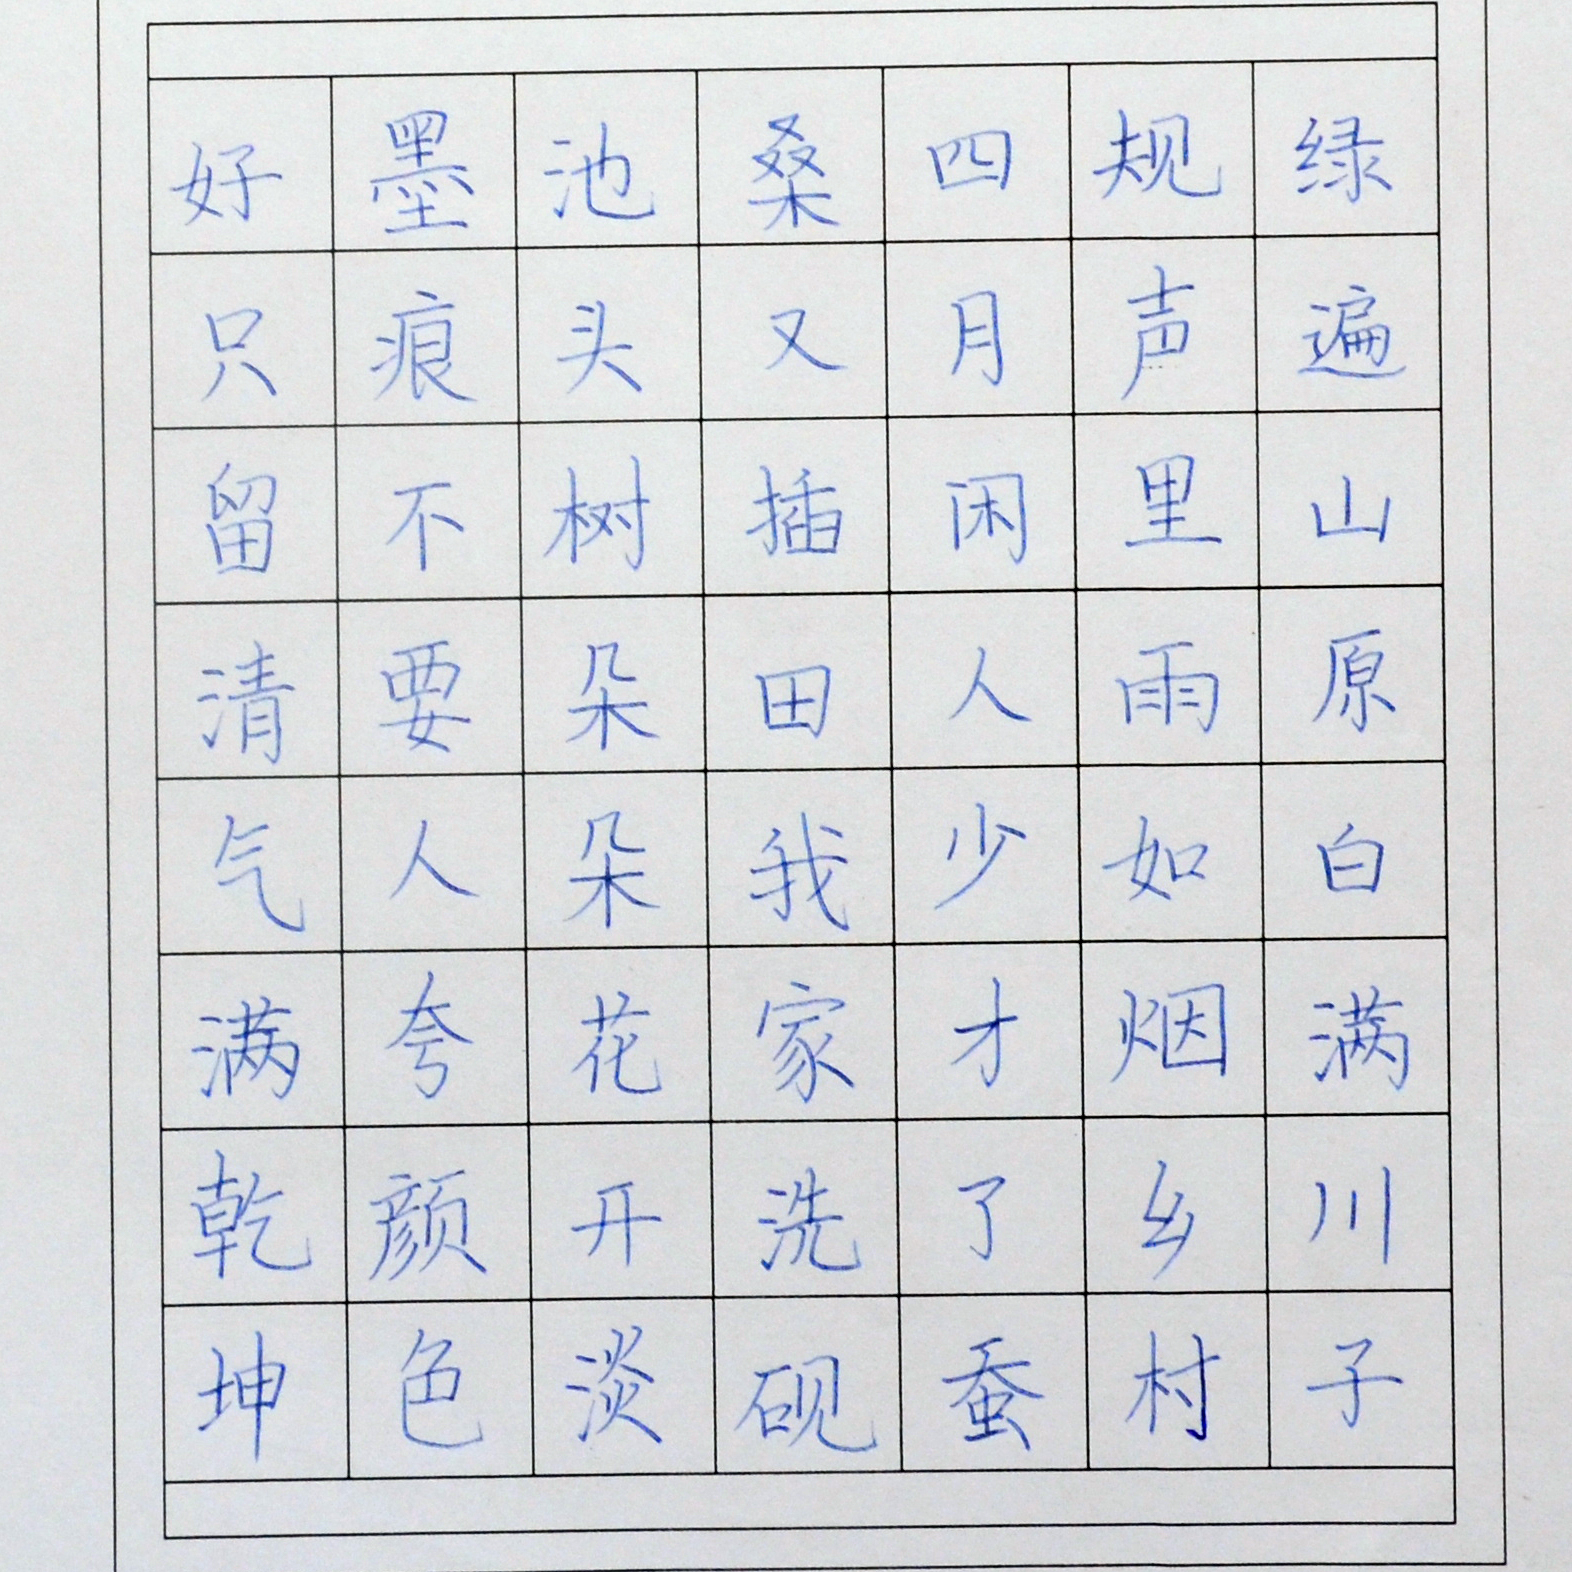 绿遍山原白满川子
规声里雨如烟乡村
四月闲人少才了蚕
桑又插田我家洗砚
池头树朵朵花开淡
墨痕不要人夸颜色
好只留清气满乾坤